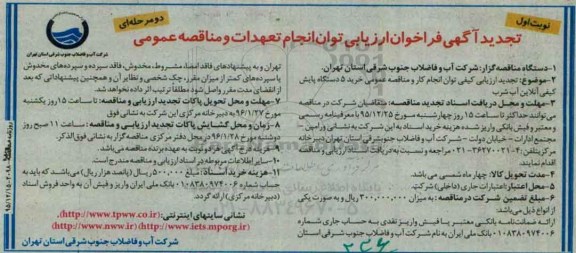 نوبت اول
دو مرحله‌ای
تجدید آگهی فراخوان ارزیابی توان انجام تعهدات و مناقصه عمومی
شرکت آب و فاضلاب جنوب شرقی استان تهران
۱- دستگاه مناقصه گزار: شرکت آب و فاضلاب جنوب شرقی استان تهران.
۲- موضوع: تجدید ارزیابی کیفی توان انجام کار و مناقصه عمومی خرید ۵ دستگاه پایش
کیفی آنلاین آب شرب
۳- مهلت و محل دریافت اسناد تجدید مناقصه: متقاضیان شرکت در مناقصه
می‌توانند حداکثر تا ساعت ۱۵ روز چهارشنبه مورخ ۹۵/۱۲/۲۵ با معرفینامه رسمی
و معتبر و فیش بانکی واریز شده هزینه خرید اسناد به این شرکت به نشانی ورامین -
مجتمع ادارات - خیابان دولت - شرکت آب و فاضلاب جنوبشرقی استان تهران دبیرخانه
مرکزی تلفن: ۴-۳۶۲۷۰۰۲۱-۰۲۱ مراجعه و نسبت به دریافت اسناد ارزیابی و مناقصه
اقدام نمایند.
۴- مدت تحویل کالا: چهار ماه شمسی می باشد.
۵- محل اعتبار: اعتبارات جاری (داخلی) شرکت.
۶- مبلغ تضمین شرکت در مناقصه: به میزان ۳۰۰,۰۰۰,۰۰۰ ریال و به صورت یکی
از انواع ذیل می‌باشد:
ارائه ضمانت‌نامه بانکی معتبر یا فیش واریز نقدی به حساب جاری شماره
۰۱۰۸۳۸۰۹۷۴۰۰۶ بانک ملی ایران به نام شرکت آب و فاضلاب جنوب شرقی استان
تهران و به پیشنهادهای فاقد امضاء، مشروط، مخدوش، فاقد سپرده و سپرده‌های مخدوش
یا سپرده‌های کمتر از میزان مقرر، چک شخصی و نظایر آن و همچنین پیشنهاداتی که بعد
از انقضای مدت مقرر واصل شود مطلقا ترتیب اثر داده نخواهد شد.
۷- مهلت و محل تحویل پاکات تجدید ارزیابی و مناقصه: تا ساعت ۱۵ روز یکشنبه
مورخ ۹۶/۱/۲۷ به دبیرخانه مرکزی این شرکت به نشانی فوق
۸- زمان و محل گشایش پاکات تجدید ارزیابی و مناقصه: ساعت ۱۱ صبح روز
دوشنبه مورخ ۹۶/۱/۲۸ در محل دفتر مرکزی مناقصه گزار به نشانی فوق الذکر.
به عهده برنده مناقصه می‌باشد.
۱۰- سایر اطلاعات مربوطه در اسناد ارزیابی و مناقصه مندرج است.
۱۱- هزینه خرید اسناد: مبلغ ۵۰۰,۰۰۰ ریال (پانصد هزار ریال) می‌باشد که باید به
حساب شماره ۰۱۰۸۳۸۰۹۷۴۰۰۶ بانک ملی ایران واریز و فیش آن به واحد فروش اسناد
(دبیرخانه مرکزی) ارائه گردد.
نشانی سایتهای اینترنتی: (http://www.tpww.co.ir)
(http://www.nww.ir) (http://www.iets.mporg.ir)
شرکت آب و فاضلاب جنوب شرقی استان تهران